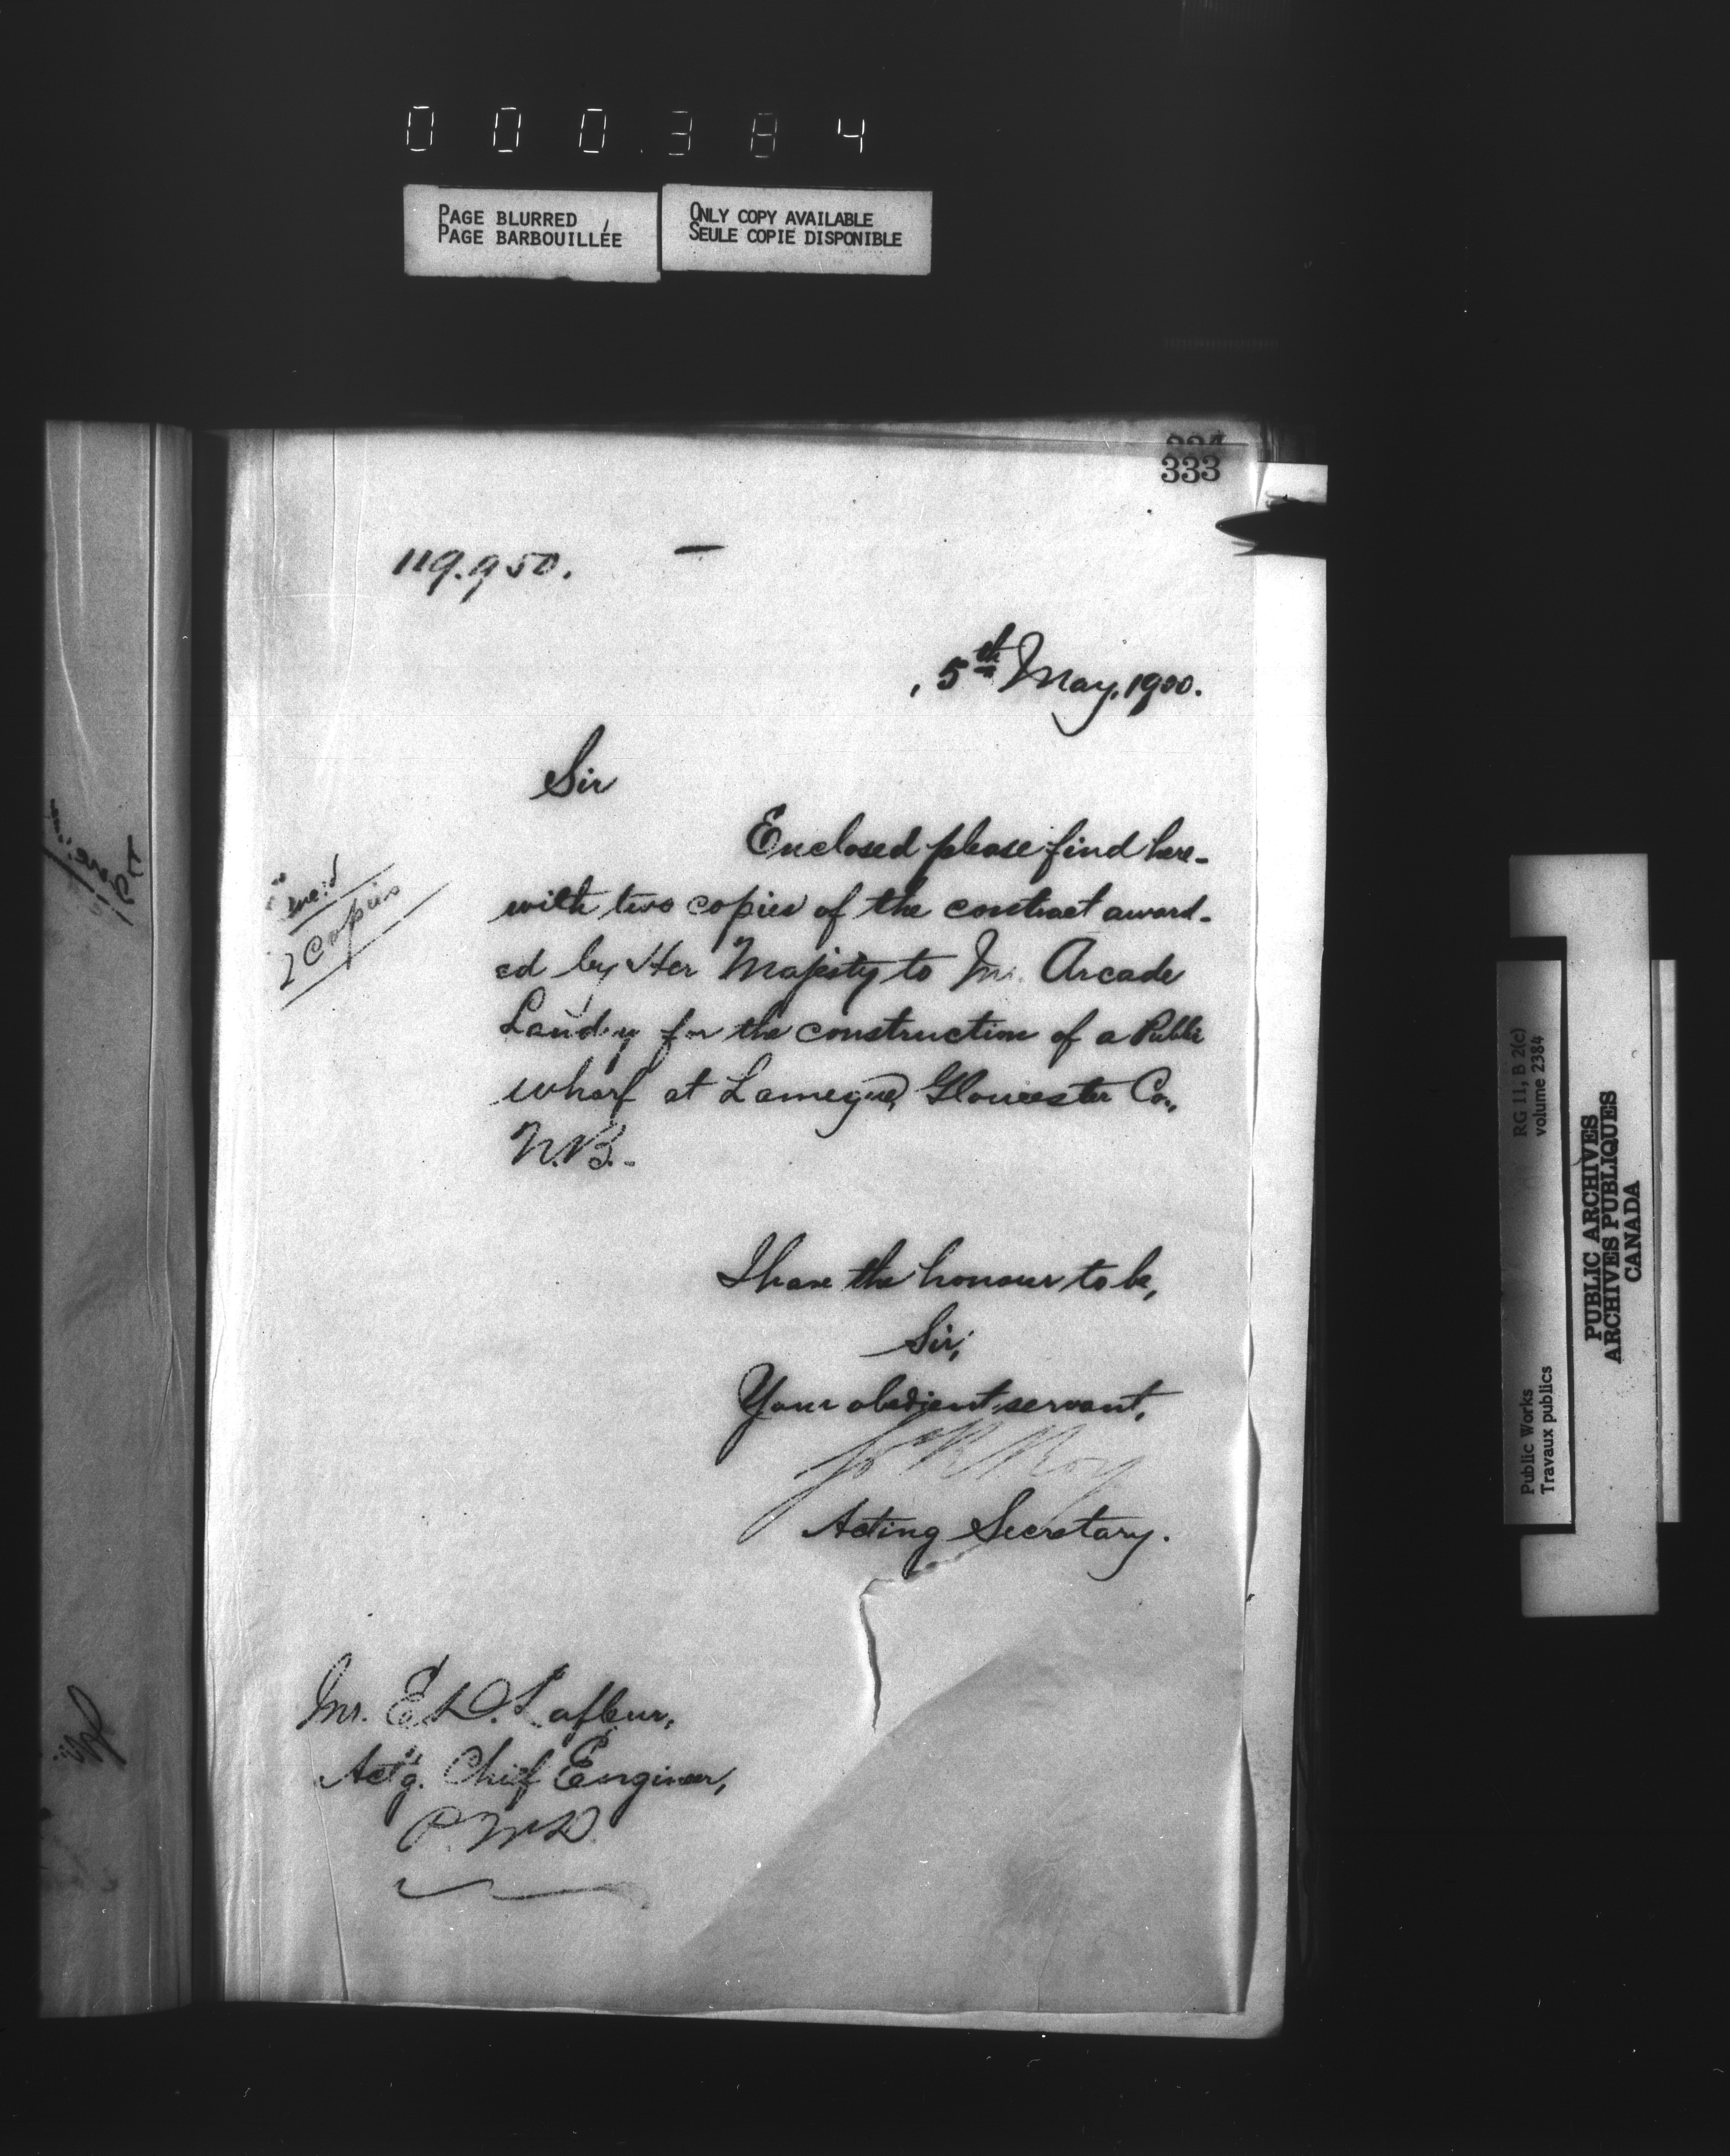 000384
PAGE BLURRED
PAGE BARBOUILLÉE
ONLY COPY AVAILABLE
SEULE COPIE DISPONIBLE
333
119.950.
5th May, 1900.
Sir
Enclosed please find here-
with two copies of the contract award-
ed by Her Majesty to Mr. Arcade
Landry for the construction of a Public
wharf at Lameque, Gloucester Co.,
N.B.
2 Copies
I have the honour to be,
Sir,
Your obedient servant,
Jos R Roy
Acting Secretary.
Mr. E. D. Lafleur,
Act'g. Chief Engineer,
P.W.D.
RG 11, B 2(c)
volume 2384
Public Works
Travaux publics
PUBLIC ARCHIVES
ARCHIVES PUBLIQUES
CANADA